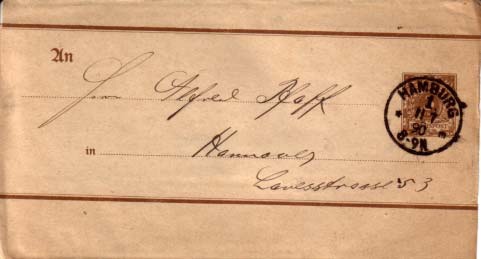 An
Hrn Alfred Pfaff
in Hannover
Lavesstrasse 53
HAMBURG
1
* 11 *
90
8-9N